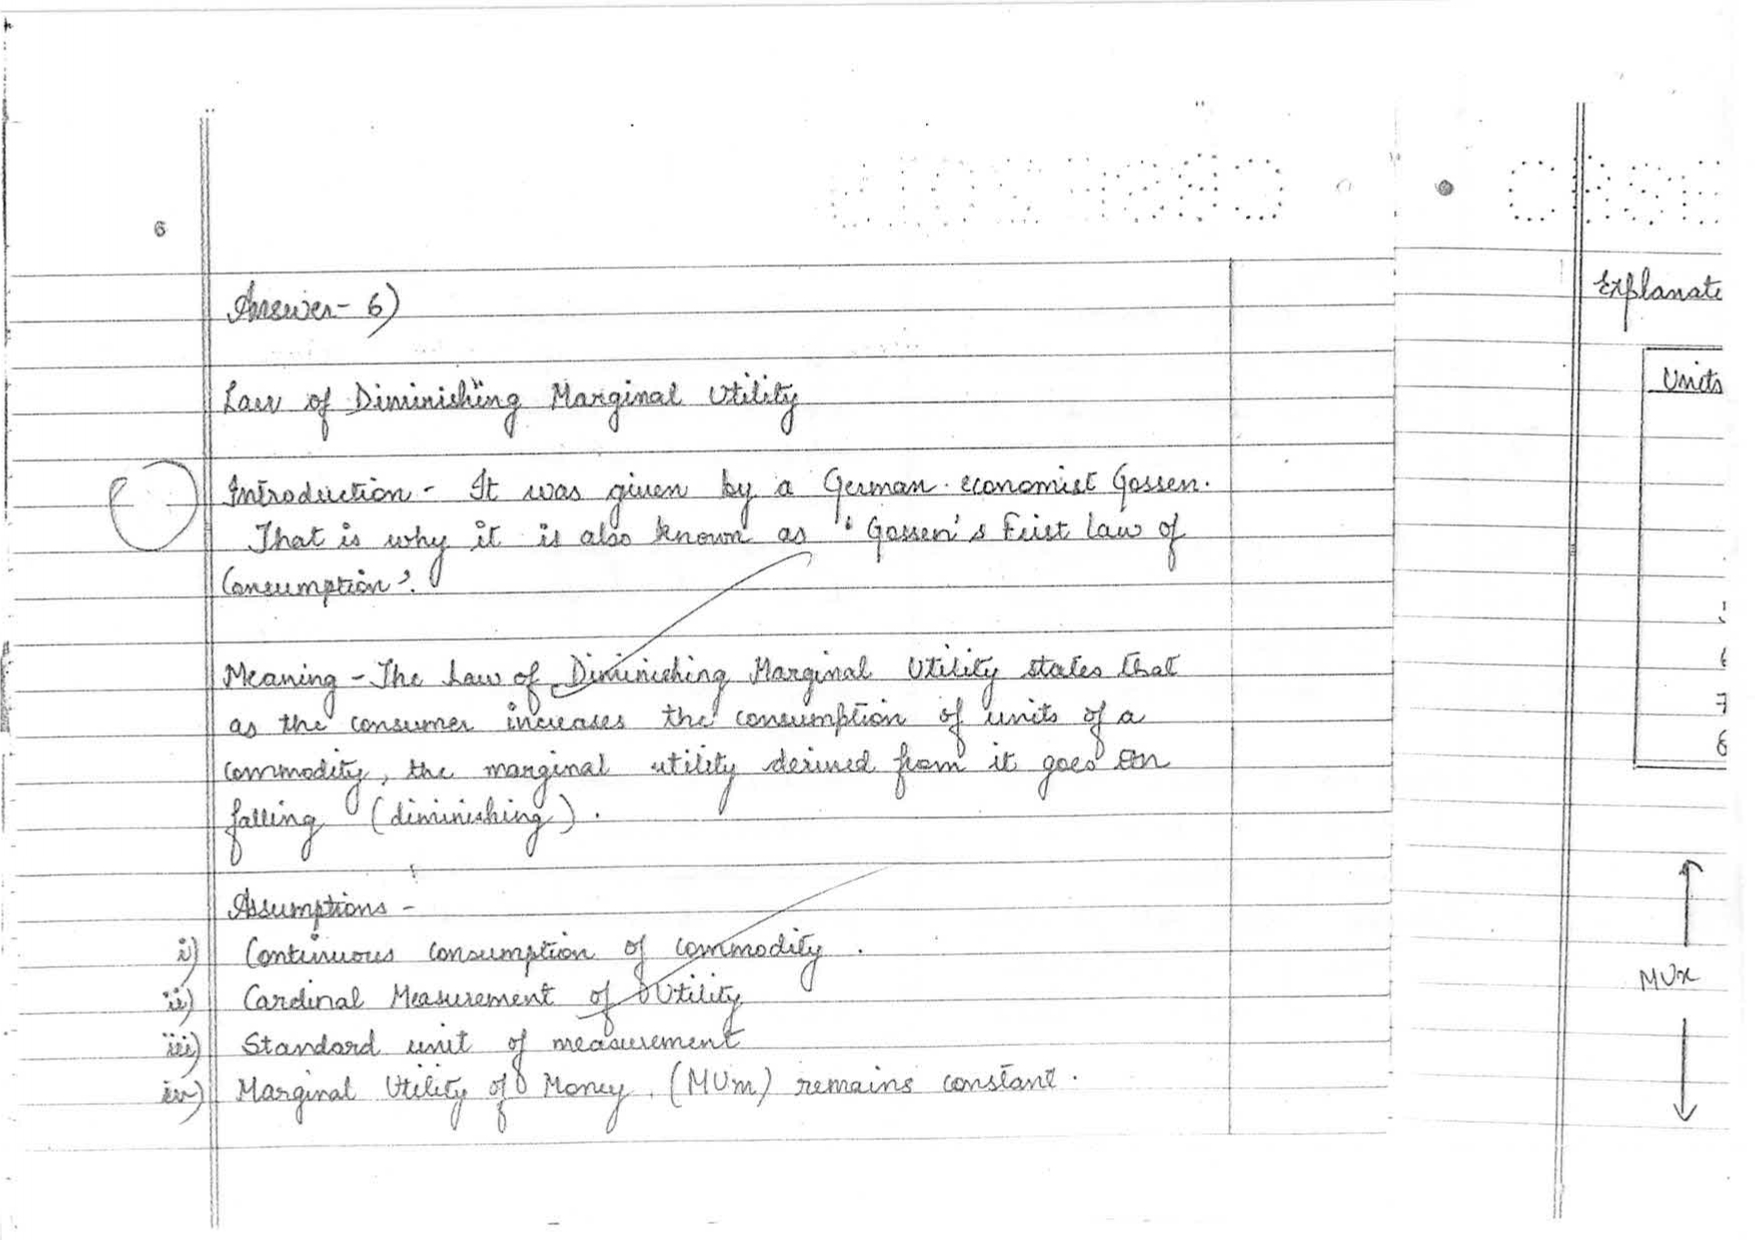 6
Answer- 6)
Law of Diminishing Marginal Utility
Introduction - It was given by a German economist Gossen.
That is why it is also known as 'Gossen's First Law of
Consumption'.
Meaning - The Law of Diminishing Marginal Utility states that
as the consumer increases the consumption of units of a
commodity, the marginal utility derived from it goes on
falling (diminishing).
Assumptions -
i) Continuous consumption of commodity.
ii) Cardinal Measurement of Utility
iii) Standard unit of measurement
iv) Marginal Utility of Money (MUm) remains constant.
Explanat
Units
6
7
8
MUx